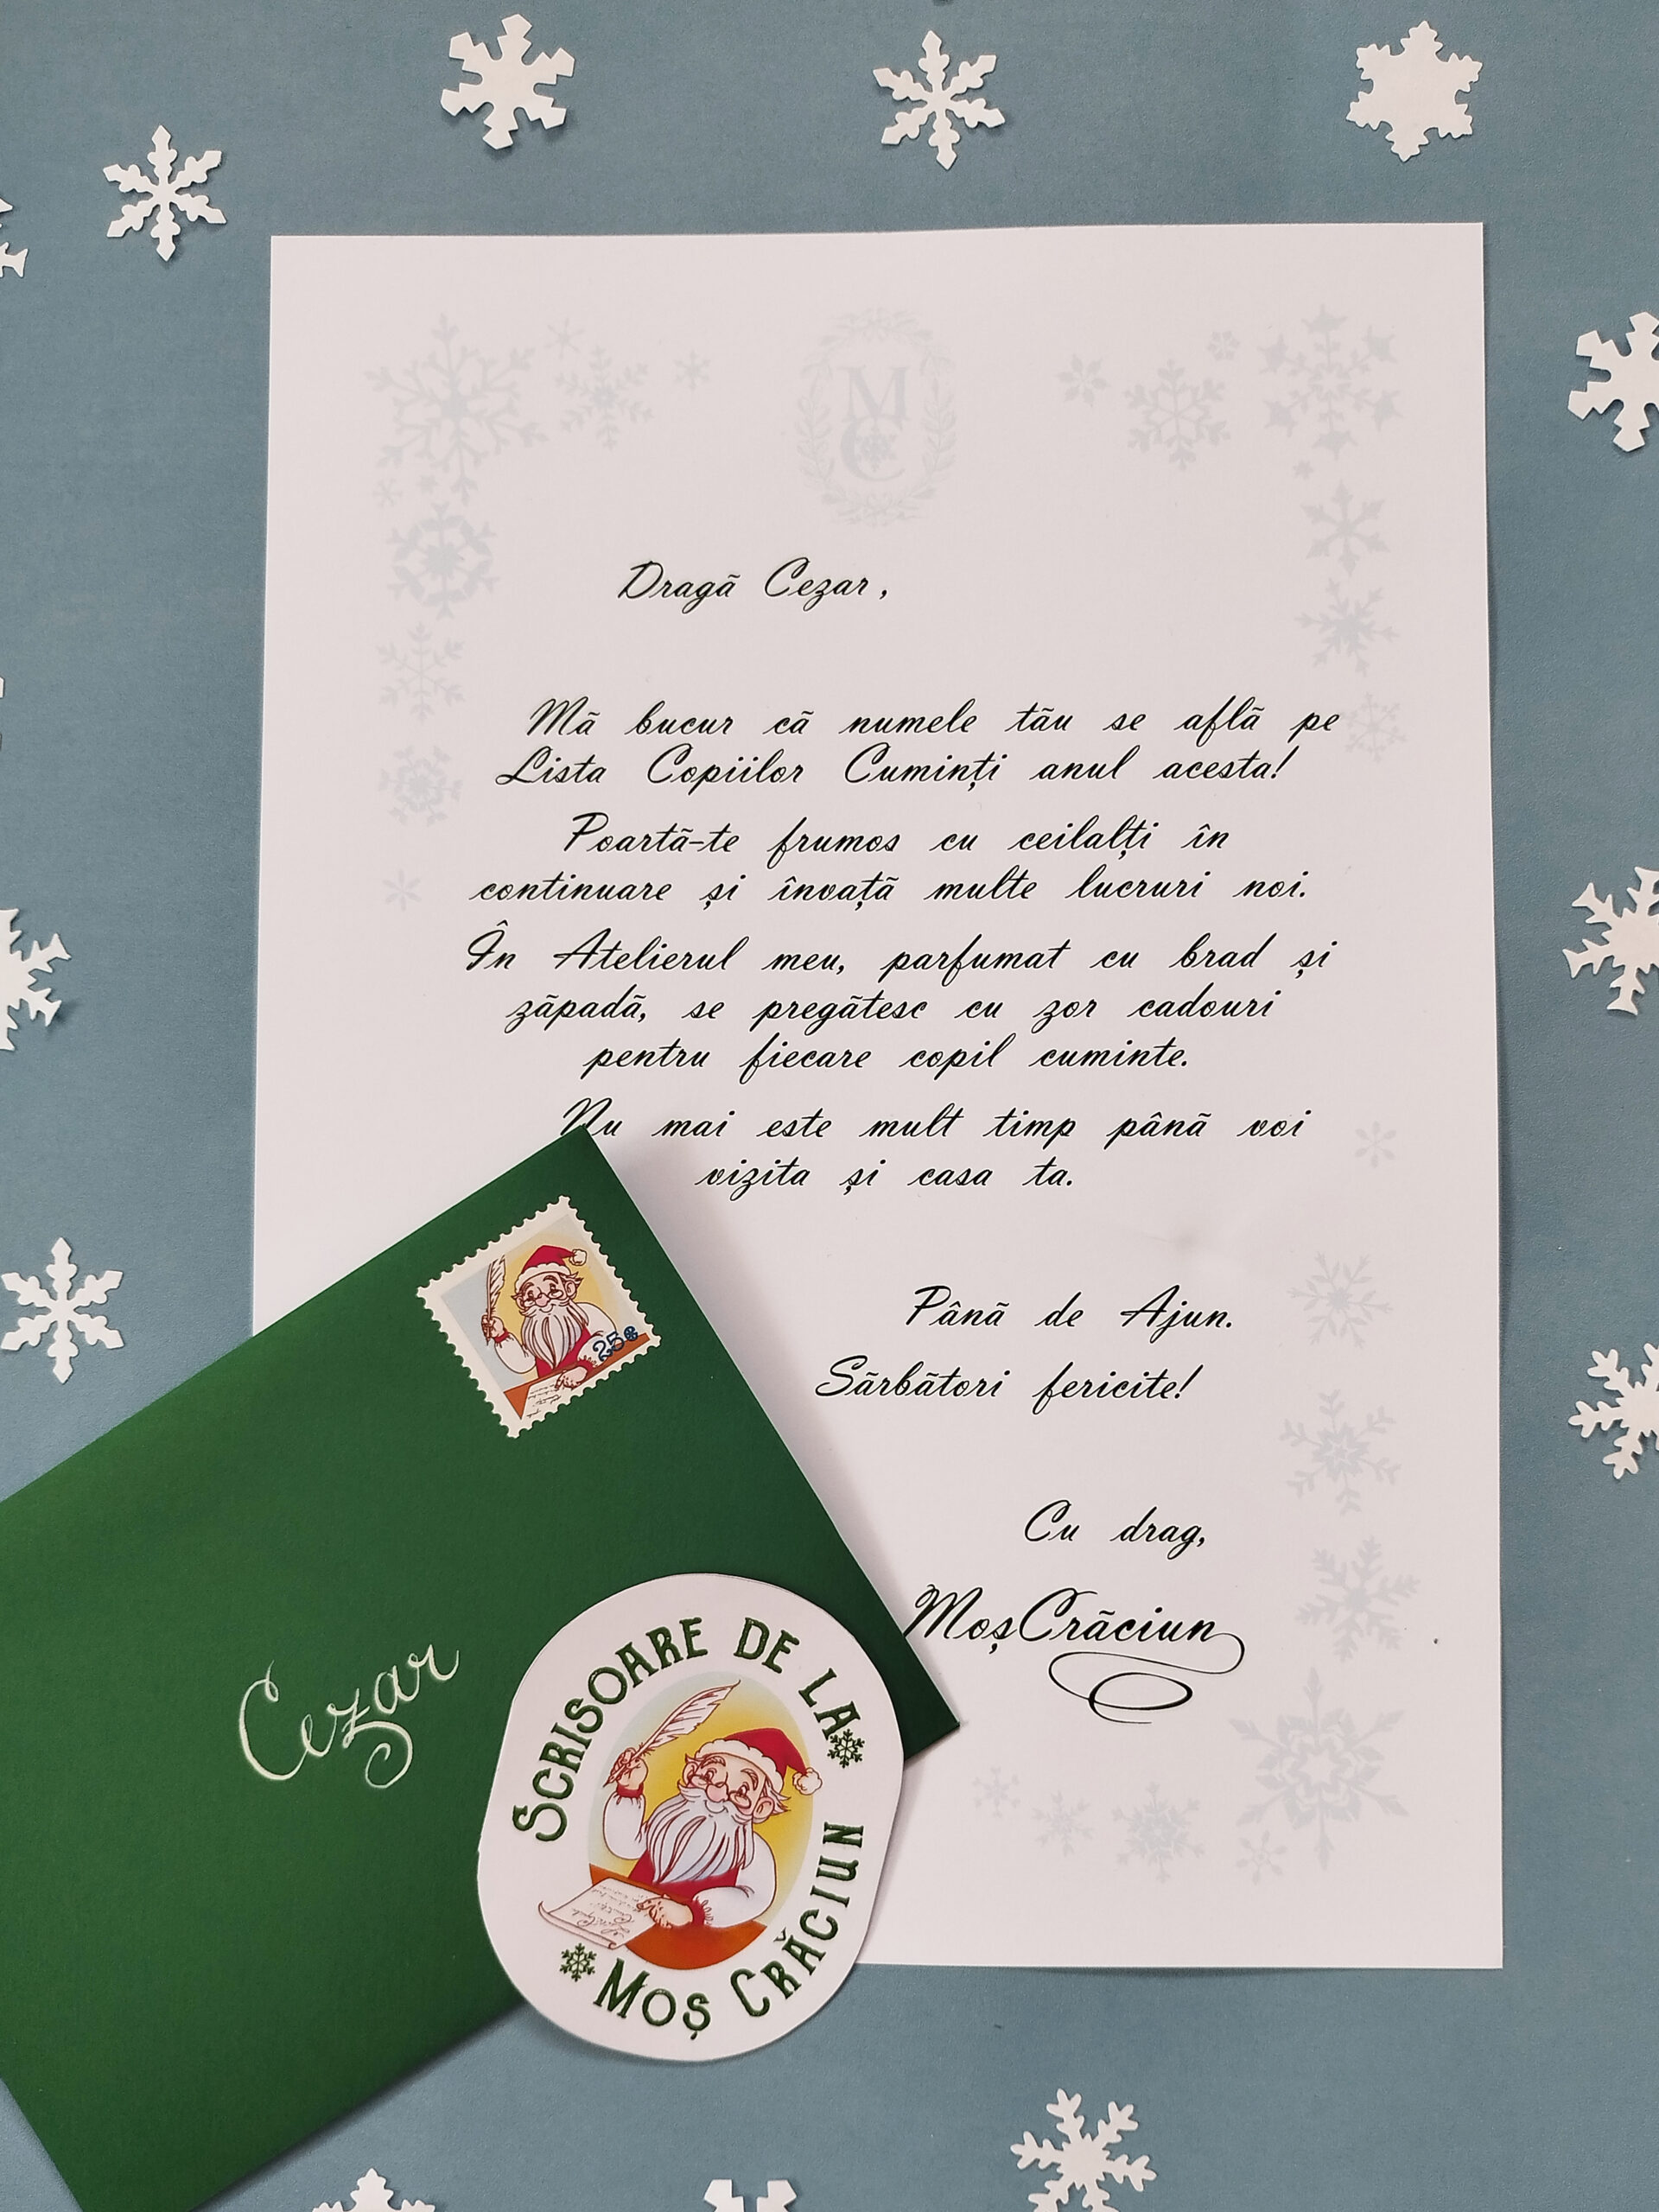 MC
Dragă Cezar,
Mă bucur că numele tău se află pe
Lista Copiilor Cuminți anul acesta!
Poartă-te frumos cu ceilalți în
continuare și învață multe lucruri noi.
În Atelierul meu, parfumat cu brad și
zăpadă, se pregătesc cu zor cadouri
pentru fiecare copil cuminte.
Nu mai este mult timp până voi
vizita și casa ta.
Până de Ajun.
Sărbători fericite!
Cu drag,
Moș Crăciun
25
Cezar
SCRISOARE DE LA
MOȘ CRĂCIUN